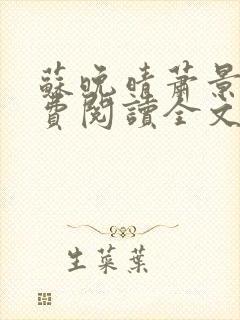 蘇晚晴蕭景
費閱讀全文
生菜葉